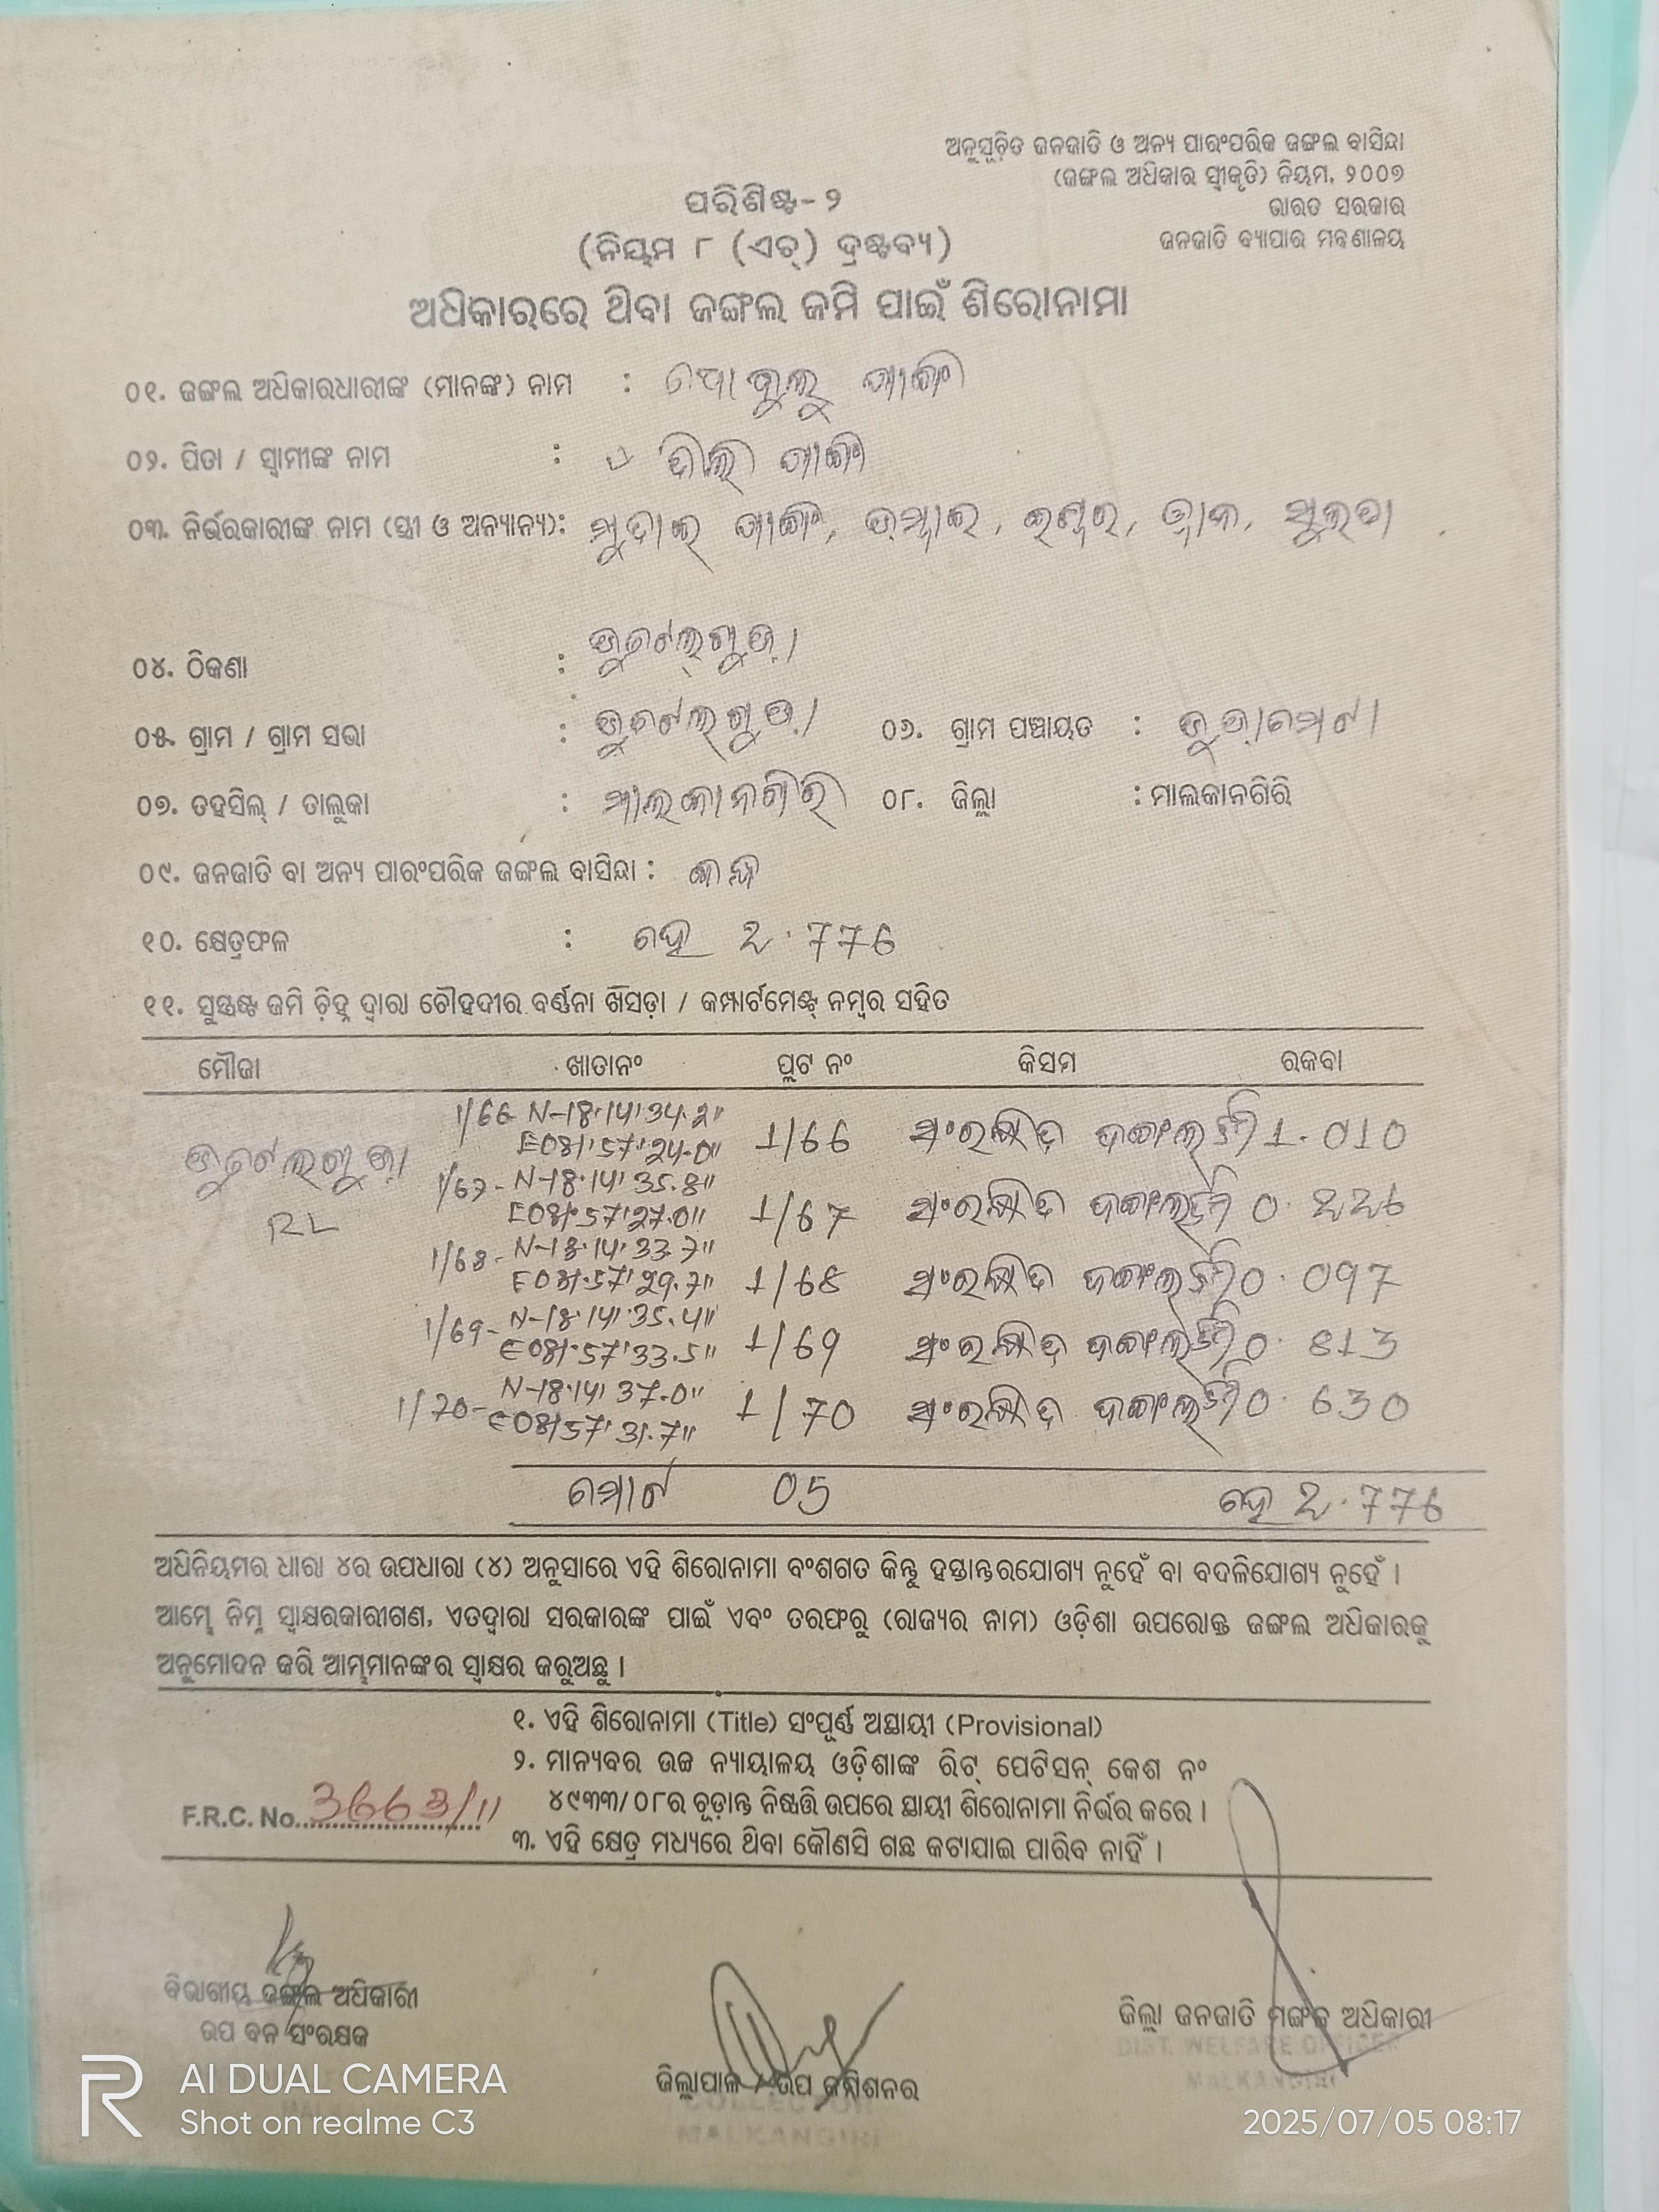 ଅନୁସୂଚିତ ଜନଜାତି ଓ ଅନ୍ୟ ପାରଂପରିକ ଜଙ୍ଗଲ ବାସିନ୍ଦା
(ଜଙ୍ଗଲ ଅଧିକାର ସ୍ୱୀକୃତି) ନିୟମ, ୨୦୦୭
ଭାରତ ସରକାର
ଜନଜାତି ବ୍ୟାପାର ମନ୍ତ୍ରଣାଳୟ
ପରିଶିଷ୍ଟ-୨
(ନିୟମ ୮ (ଏଚ୍) ଦ୍ରଷ୍ଟବ୍ୟ)
ଅଧିକାରରେ ଥିବା ଜଙ୍ଗଲ ଜମି ପାଇଁ ଶିରୋନାମା
୦୧. ଜଙ୍ଗଲ ଅଧିକାରଧାରୀଙ୍କ (ମାନଙ୍କ) ନାମ :
୦୨. ପିତା / ସ୍ୱାମୀଙ୍କ ନାମ :
୦୩. ନିର୍ଭରକାରୀଙ୍କ ନାମ (ସ୍ତ୍ରୀ ଓ ଅନ୍ୟାନ୍ୟ):
୦୪. ଠିକଣା :
୦୫. ଗ୍ରାମ / ଗ୍ରାମ ସଭା : ୦୬. ଗ୍ରାମ ପଞ୍ଚାୟତ :
୦୭. ତହସିଲ୍ / ତାଲୁକା : ମାଲକାନଗିରି ୦୮. ଜିଲ୍ଲା : ମାଲକାନଗିରି
୦୯. ଜନଜାତି ବା ଅନ୍ୟ ପାରଂପରିକ ଜଙ୍ଗଲ ବାସିନ୍ଦା :
୧୦. କ୍ଷେତ୍ରଫଳ : ହେ 2.776
୧୧. ସୁସ୍ପଷ୍ଟ ଜମି ଚ଼ିହ୍ନ ଦ୍ୱାରା ଚୌହଦୀର ବର୍ଣ୍ଣନା ଖସଡ଼ା / କମ୍ପାର୍ଟମେଣ୍ଟ୍ ନମ୍ବର ସହିତ
ମୌଜା ଖାତାନଂ ପ୍ଲଟ ନଂ କିସମ ରକବା
1/66- N-18°14'34.2"
E081°57'24.0" 1/66 ସଂରକ୍ଷିତ ଜଙ୍ଗଲ 1.010
1/67- N-18°14'35.8"
E081°57'27.0" 1/67 ସଂରକ୍ଷିତ ଜଙ୍ଗଲ 0.226
RL
1/68- N-18°14'33.7"
E081°57'29.7" 1/68 ସଂରକ୍ଷିତ ଜଙ୍ଗଲ 0.097
1/69- N-18°14'35.4"
E081°57'33.5" 1/69 ସଂରକ୍ଷିତ ଜଙ୍ଗଲ 0.813
1/70- N-18°14'37.0"
E081°57'31.7" 1/70 ସଂରକ୍ଷିତ ଜଙ୍ଗଲ 0.630
ମୋଟ 05 ହେ 2.776
ଅଧିନିୟମର ଧାରା ୪ର ଉପଧାରା (୪) ଅନୁସାରେ ଏହି ଶିରୋନାମା ବଂଶଗତ କିନ୍ତୁ ହସ୍ତାନ୍ତରଯୋଗ୍ୟ ନୁହେଁ ବା ବଦଳିଯୋଗ୍ୟ ନୁହେଁ ।
ଆମ୍ଭେ ନିମ୍ନ ସ୍ୱାକ୍ଷରକାରୀଗଣ, ଏତଦ୍ୱାରା ସରକାରଙ୍କ ପାଇଁ ଏବଂ ତରଫରୁ (ରାଜ୍ୟର ନାମ) ଓଡ଼ିଶା ଉପରୋକ୍ତ ଜଙ୍ଗଲ ଅଧିକାରକୁ
ଅନୁମୋଦନ କରି ଆମ୍ଭମାନଙ୍କର ସ୍ୱାକ୍ଷର କରୁଅଛୁ ।
୧. ଏହି ଶିରୋନାମା (Title) ସଂପୂର୍ଣ୍ଣ ଅସ୍ଥାୟୀ (Provisional)
୨. ମାନ୍ୟବର ଉଚ୍ଚ ନ୍ୟାୟାଳୟ ଓଡ଼ିଶାଙ୍କ ରିଟ୍ ପେଟିସନ୍ କେଶ ନଂ
୪୯୩୩/୦୮ର ଚୂଡ଼ାନ୍ତ ନିଷ୍ପତ୍ତି ଉପରେ ସ୍ଥାୟୀ ଶିରୋନାମା ନିର୍ଭର କରେ ।
F.R.C. No. 3663/11
୩. ଏହି କ୍ଷେତ୍ର ମଧ୍ୟରେ ଥିବା କୌଣସି ଗଛ କଟାଯାଇ ପାରିବ ନାହିଁ ।
ବିଭାଗୀୟ ଜଙ୍ଗଲ ଅଧିକାରୀ
ଉପ ବନ ସଂରକ୍ଷକ
ଜିଲ୍ଲାପାଳ / ଉପ କମିଶନର
COLLECTOR
MALKANGIRI
ଜିଲ୍ଲା ଜନଜାତି ମଙ୍ଗଳ ଅଧିକାରୀ
DIST. WELFARE OFFICER
MALKANGIRI
AI DUAL CAMERA
Shot on realme C3
2025/07/05 08:17